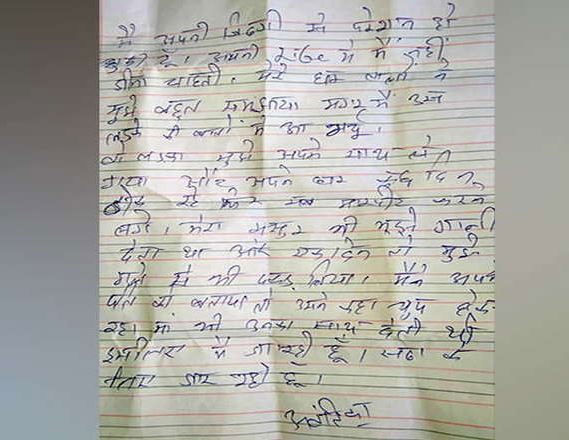 मैं अपनी जिंदगी से परेशान हो
चुकी हूँ। अपनी में मैं नहीं
जीना चाहती। मेरे घर वालों ने
मुझे बहुत समझाया मगर मैं उस
लड़के की बातों में आ गई।
वो लड़का मुझे अपने साथ ले
गया और अपने घर कुछ दिन
बाद सब मारपीट करने
लगे। मेरा ससुर भी मुझे गाली
देता था और एक दिन तो मुझे
गले से भी पकड़ लिया। मैंने अपने
पति को बताया तो उसने कहा चुप
रहो मां भी उनका साथ देती थी
इसलिए मैं जा रही हूँ। सदा के
लिए जा रही हूँ।
अवंतिका